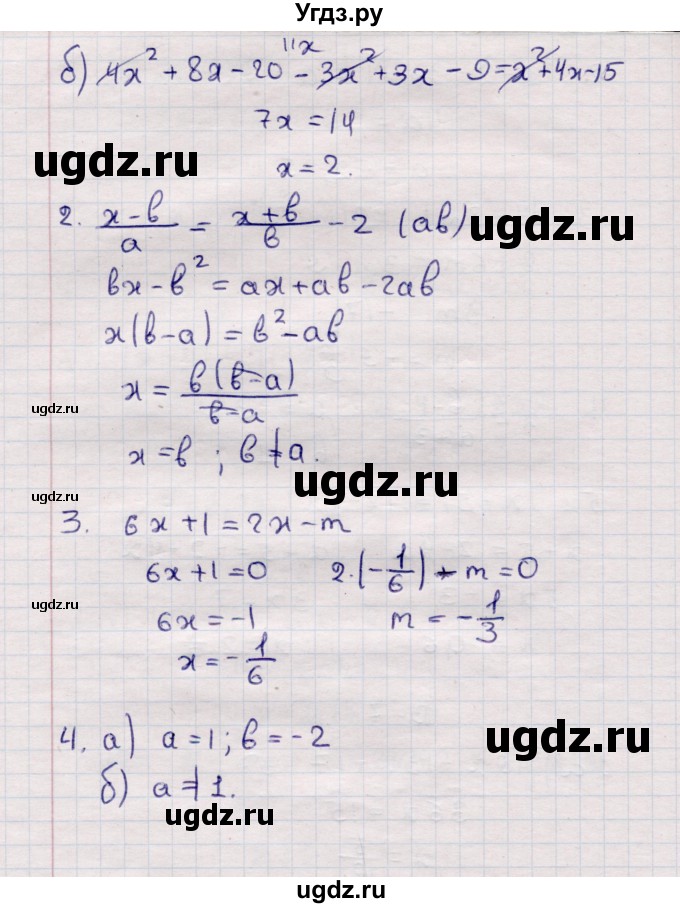 Угдз.ру
11x
б) 4x² + 8x - 20 - 3x² + 3x - 9 = x² + 4x - 15
7x = 14
ugdz.ru
x = 2.
2. (x-в)/a = (x+в)/в - 2 (aв)
ugdz.ru
вx - в² = ax + aв - 2aв
x(в-a) = в² - aв
x = в(в-a)/(в-a)
ugdz.ru
x = в ; в ≠ a.
ugdz.ru
ugdz.ru
3. 6x + 1 = 2x - m
6x + 1 = 0 2·(-1/6) - m = 0
ugdz.ru
6x = -1 m = -1/3
x = -1/6
4. а) a = 1; в = -2
ugdz.ru
б) a ≠ 1.
ugdz.ru
ugdz.ru